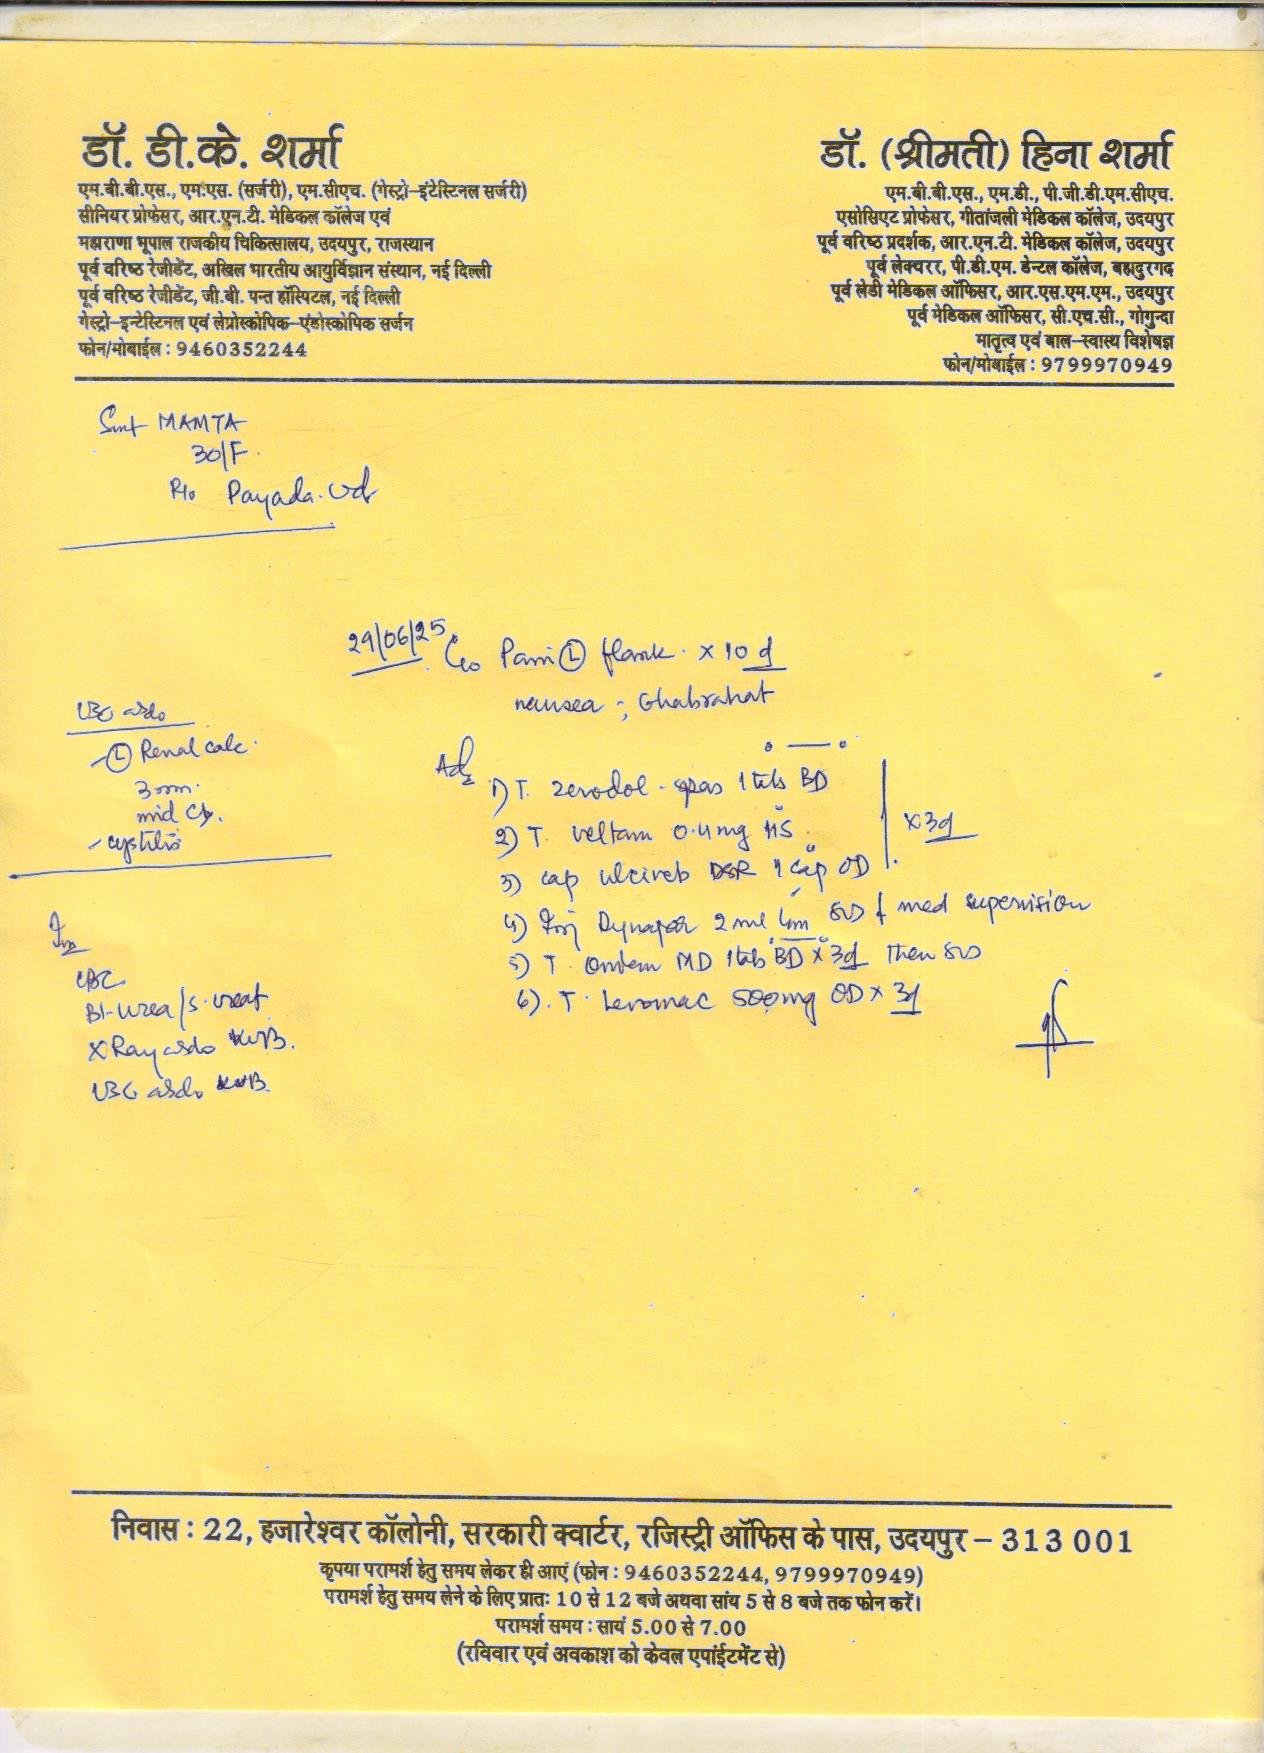 डॉ. डी.के. शर्मा
एम.बी.बी.एस., एम.एस. (सर्जरी), एम.सीएच. (गेस्ट्रो–इंटेस्टिनल सर्जरी)
सीनियर प्रोफेसर, आर.एन.टी. मेडिकल कॉलेज एवं
महाराणा भूपाल राजकीय चिकित्सालय, उदयपुर, राजस्थान
पूर्व वरिष्ठ रेजीडेंट, अखिल भारतीय आयुर्विज्ञान संस्थान, नई दिल्ली
पूर्व वरिष्ठ रेजीडेंट, जी.बी. पन्त हॉस्पिटल, नई दिल्ली
गेस्ट्रो–इन्टेस्टिनल एवं लेप्रोस्कोपिक–एंडोस्कोपिक सर्जन
फोन/मोबाईल : 9460352244
डॉ. (श्रीमती) हिना शर्मा
एम.बी.बी.एस., एम.डी., पी.जी.डी.एम.सीएच.
एसोसिएट प्रोफेसर, गीतांजली मेडिकल कॉलेज, उदयपुर
पूर्व वरिष्ठ प्रदर्शक, आर.एन.टी. मेडिकल कॉलेज, उदयपुर
पूर्व लेक्चरर, पी.डी.एम. डेन्टल कॉलेज, बहादुरगढ़
पूर्व लेडी मेडिकल ऑफिसर, आर.एस.एम.एम., उदयपुर
पूर्व मेडिकल ऑफिसर, सी.एच.सी., गोगुन्दा
मातृत्व एवं बाल–स्वास्थ्य विशेषज्ञ
फोन/मोबाईल : 9799970949
Smt MAMTA
30/F
R/o Payada. Ud
29/06/25 C/o Pain Ⓛ flank. x 10 d
nausea ; Ghabrahat
USG abdo
- Ⓛ Renal calc.
3mm.
mid Cx.
- cystitis
Adv
1) T. zerodol-spas 1 tab BD
2) T. veltam 0.4mg HS
3) cap ulcireb DSR 1 cap OD
x 3d
4) Inj Dynapar 2 ml Im SOS f med supervision
5) T. ondem MD 1 tab BD x 3d then SOS
6). T. Levomac 500mg OD x 3d
Inv
CBC
Bl-urea/s.creat
X Ray abdo KUB.
USG abdo KUB.
निवास : 22, हजारेश्वर कॉलोनी, सरकारी क्वार्टर, रजिस्ट्री ऑफिस के पास, उदयपुर – 313 001
कृपया परामर्श हेतु समय लेकर ही आएं (फोन : 9460352244, 9799970949)
परामर्श हेतु समय लेने के लिए प्रातः 10 से 12 बजे अथवा सांय 5 से 8 बजे तक फोन करें।
परामर्श समय : सायं 5.00 से 7.00
(रविवार एवं अवकाश को केवल एपांईटमेंट से)